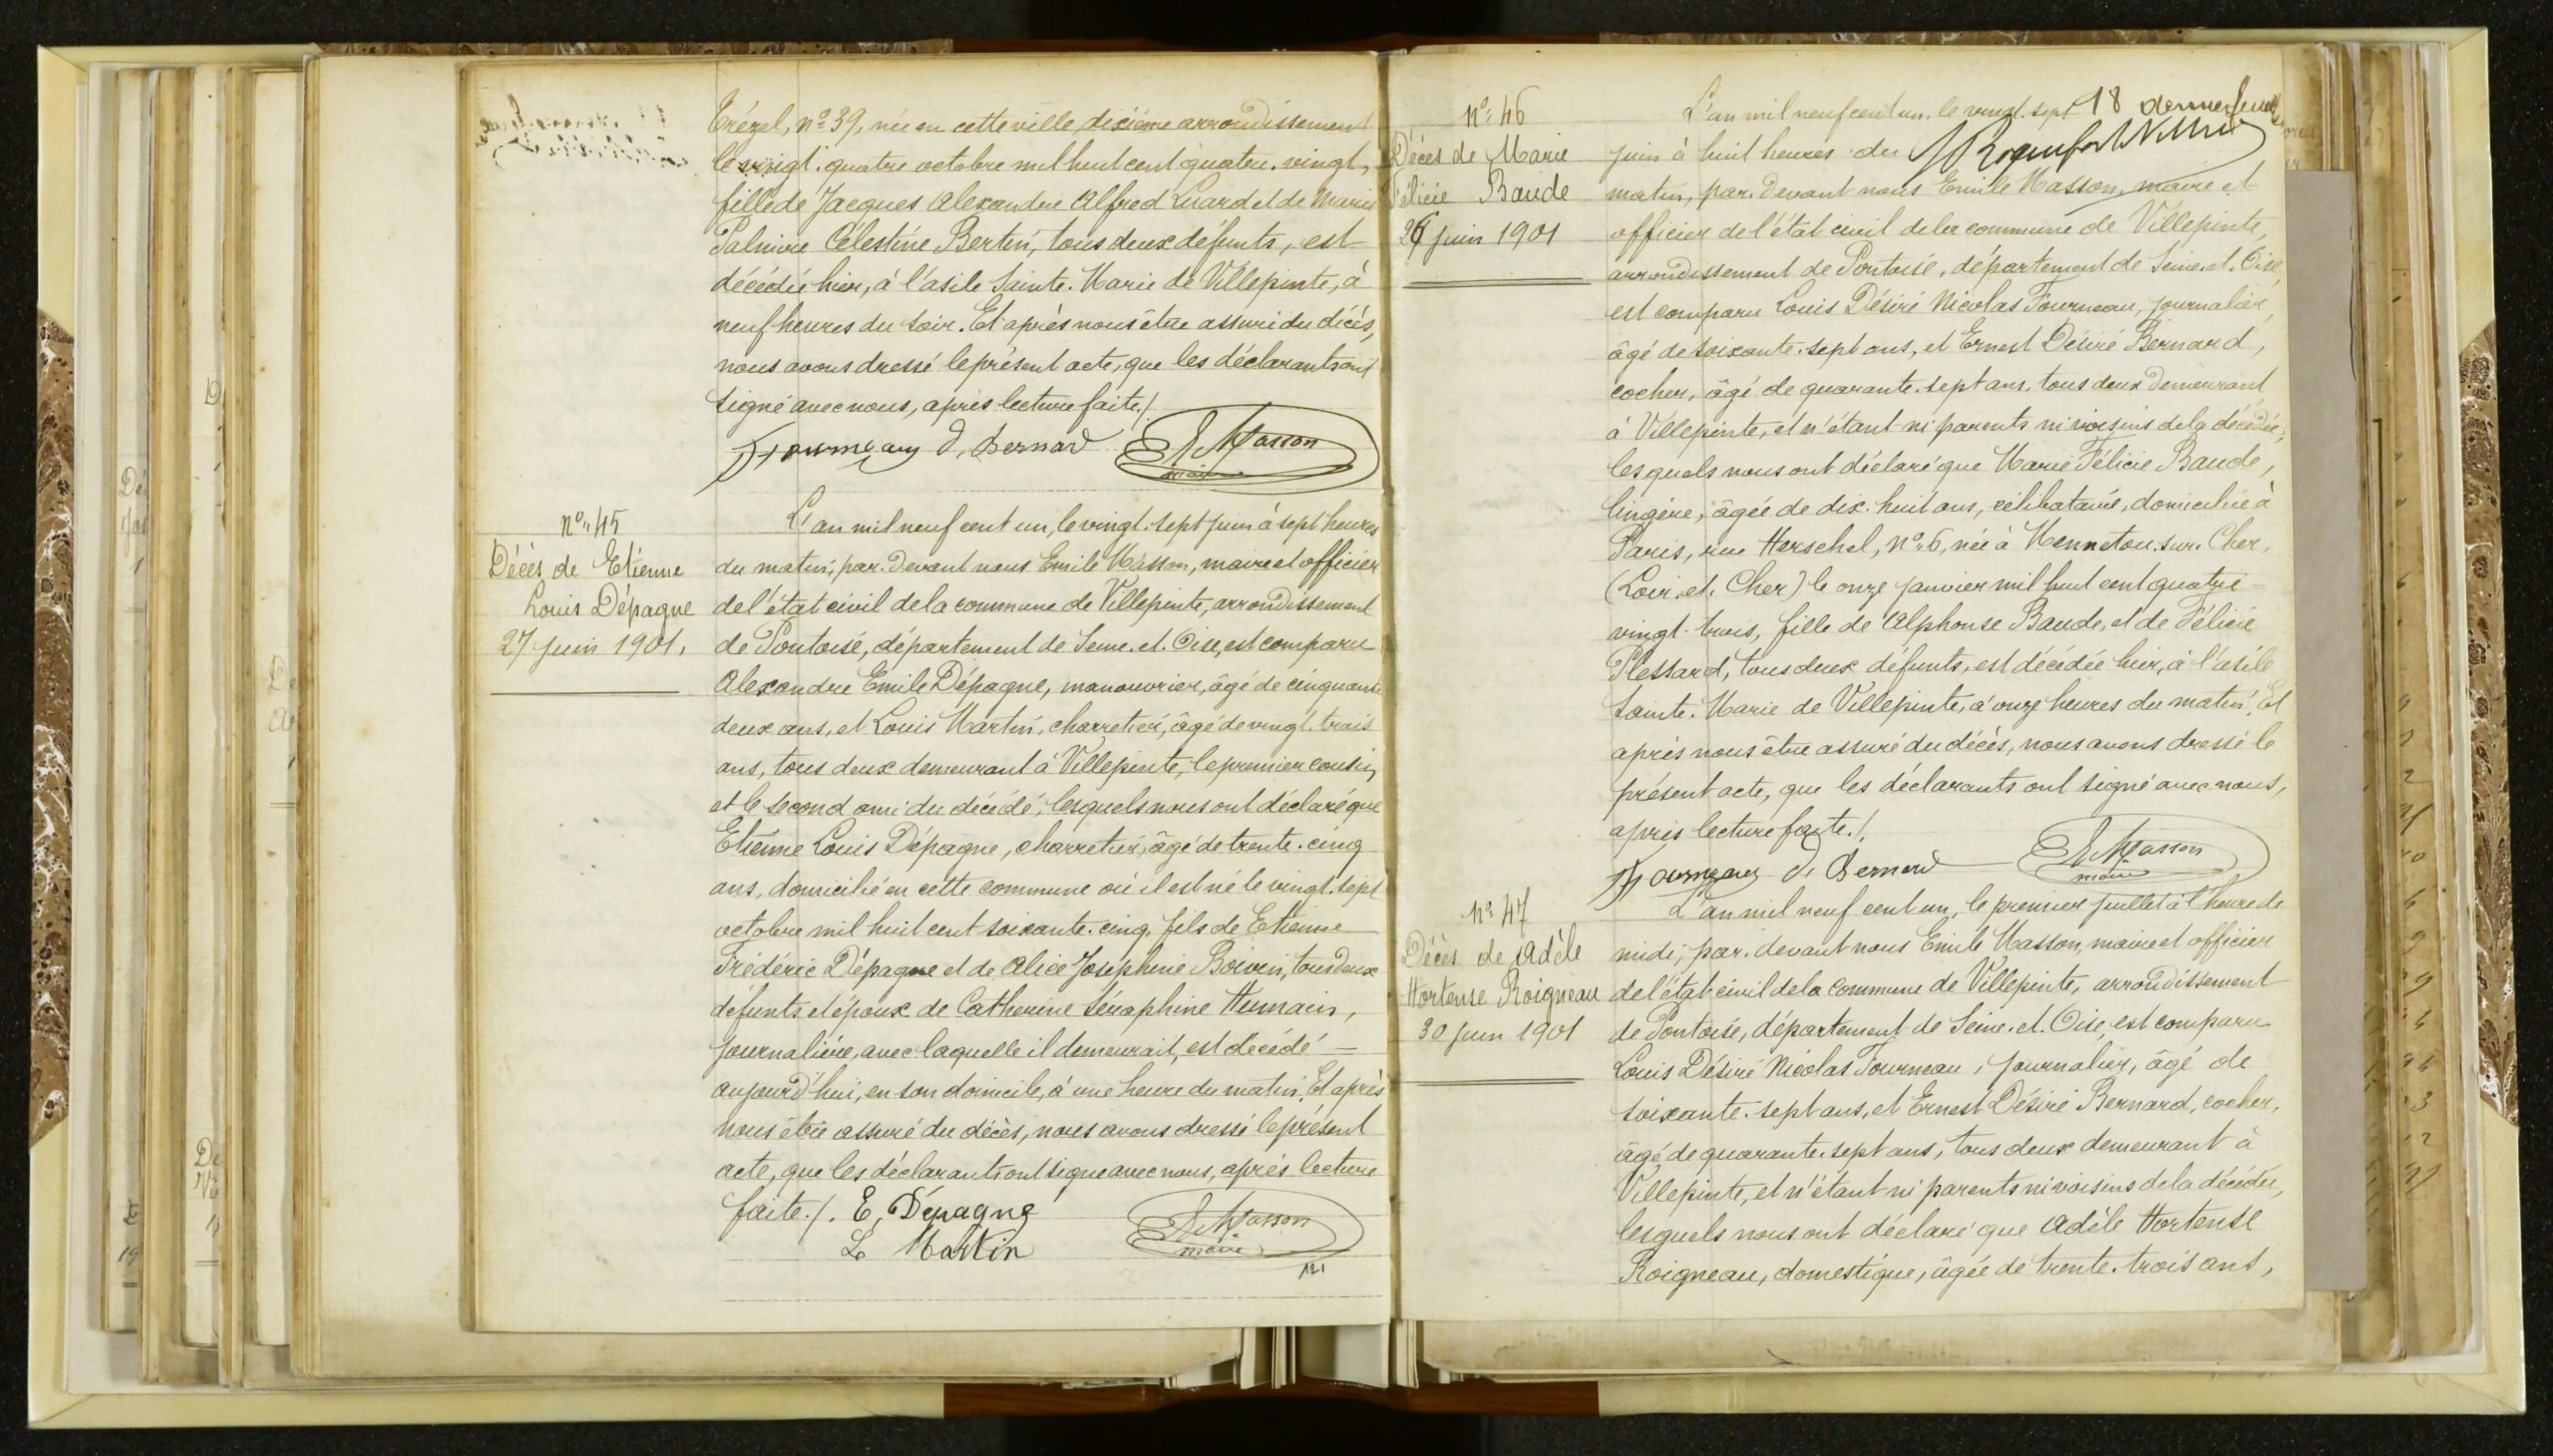 Trézel, n° 39, née en cette ville, dixième arrondissement
le vingt-quatre octobre mil huit cent quatre-vingt,
fille de Jacques Alexandre Alfred Luard et de Marie
Palmire Célestine Bertin, tous deux défunts, est
décédée hier, à l'asile Sainte-Marie de Villepinte, à
neuf heures du soir. Et après nous être assuré du décès,
nous avons dressé le présent acte, que les déclarants ont
signé avec nous, après lecture faite./.
Fourneaux d. Bernard E. Masson
maire
N° 45
Décès de Etienne
Louis Dépagne
27 juin 1901.
L'an mil neuf cent un, le vingt-sept juin à sept heures
du matin, par-devant nous Emile Masson, maire et officier
de l'état civil de la commune de Villepinte, arrondissement
de Pontoise, département de Seine-et-Oise, est comparu
Alexandre Emile Dépagne, manouvrier, âgé de cinquante
deux ans, et Louis Martin, charretier, âgé de vingt-trois
ans, tous deux demeurant à Villepinte, le premier cousin,
et le second ami du décédé; lesquels nous ont déclaré que
Etienne Louis Dépagne, charretier, âgé de trente-cinq
ans, domicilié en cette commune où il est né le vingt-sept
octobre mil huit cent soixante-cinq, fils de Etienne
Frédéric Dépagne et de Alice Joséphine Boivin, tous deux
défunts et époux de Catherine Séraphine Humain,
journalière, avec laquelle il demeurait, est décédé
aujourd'hui, en son domicile, à une heure du matin. Et après
nous être assuré du décès, nous avons dressé le présent
acte, que les déclarants ont signé avec nous, après lecture
faite./. E. Dépagne
L. Martin E. Masson
maire
N° 46
Décès de Marie
Félicie Baude
26 juin 1901
18 dernier feuillet
L'an mil neuf cent un, le vingt-sept
juin à huit heures du
matin, par-devant nous Emile Masson, maire et
officier de l'état civil de la commune de Villepinte,
arrondissement de Pontoise, département de Seine-et-Oise,
est comparu Louis Désiré Nicolas Fourneau, journalier,
âgé de soixante-sept ans, et Ernest Désiré Bernard,
cocher, âgé de quarante-sept ans, tous deux demeurant
à Villepinte, et n'étant ni parents ni voisins de la décédée;
lesquels nous ont déclaré que Marie Félicie Baude,
lingère, âgée de dix-huit ans, célibataire, domiciliée à
Paris, rue Herschel, n° 6, née à Mennetou-sur-Cher,
(Loir-et-Cher) le onze janvier mil huit cent quatre-
vingt-trois, fille de Alphonse Baude, et de Félicie
Plessard, tous deux défunts, est décédée hier, à l'asile
Sainte-Marie de Villepinte, à onze heures du matin. Et
après nous être assuré du décès, nous avons dressé le
présent acte, que les déclarants ont signé avec nous,
après lecture faite./.
Fourneaux d. Bernard E. Masson
maire
N° 47
Décès de Adèle
Hortense Roigneau
30 juin 1901
L'an mil neuf cent un, le premier juillet à l'heure de
midi, par-devant nous Emile Masson, maire et officier
de l'état civil de la commune de Villepinte, arrondissement
de Pontoise, département de Seine-et-Oise, est comparu
Louis Désiré Nicolas Fourneau, journalier, âgé de
soixante-sept ans, et Ernest Désiré Bernard, cocher,
âgé de quarante-sept ans, tous deux demeurant à
Villepinte, et n'étant ni parents ni voisins de la décédée,
lesquels nous ont déclaré que Adèle Hortense
Roigneau, domestique, âgée de trente-trois ans,